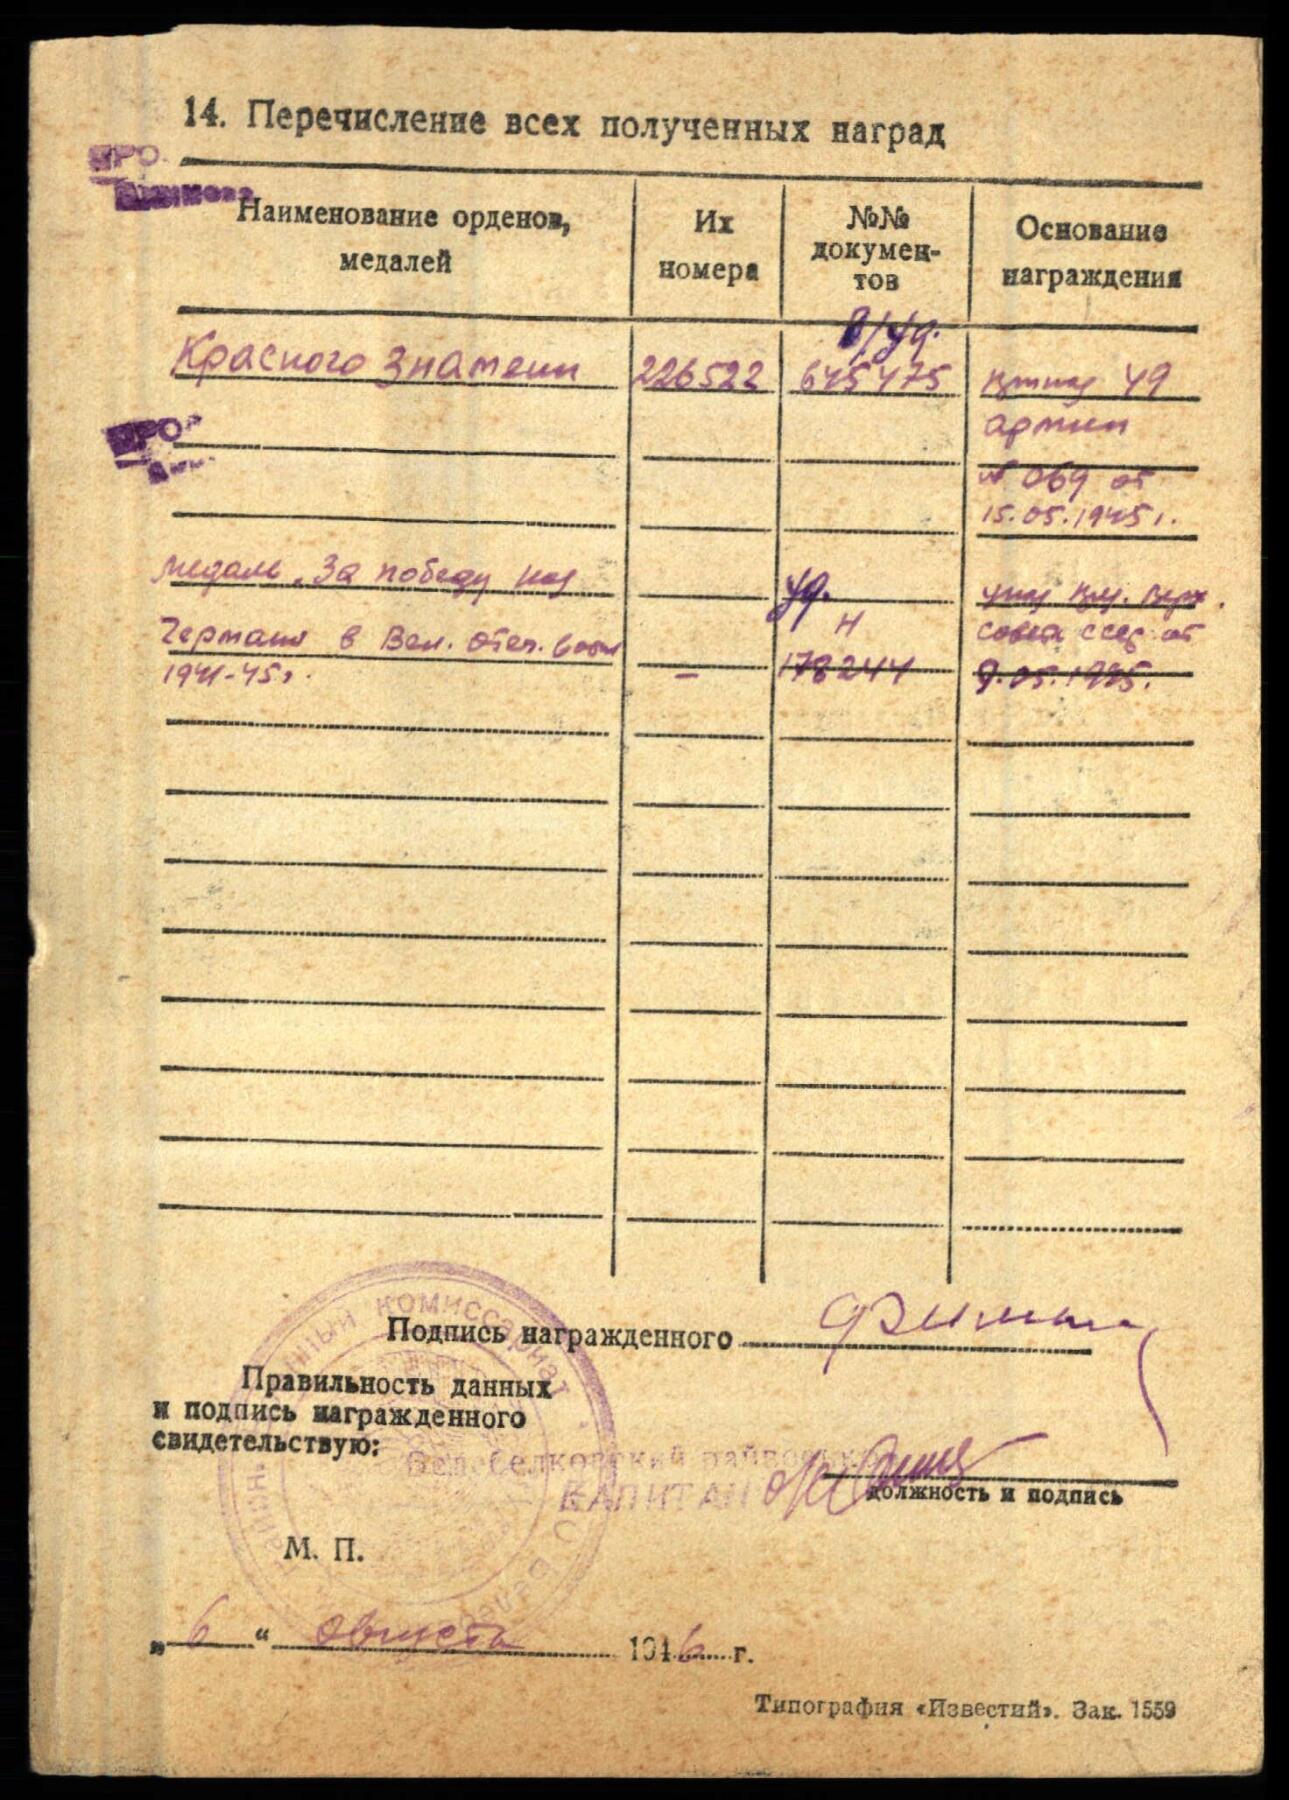 14. Перечисление всех полученных наград
Наименование орденов,
медалей
Их
номера
№№
докумен-
тов
Основание
награждения
в/уд.
Красного Знамени
226522
645475
49
армии
№ 069 от
15.05.1945 г.
Медаль „За победу над
уд.
през. верх.
Н
совета ссср от
в Вел. отеч. войне
1941-45 г.
–
178244
9.05.1945.
комиссариат
Подпись награжденного
Правильность данных
и подпись награжденного
свидетельствую:
КАПИТАН
должность и подпись
М. П.
„ 6 “ августа 1946 г.
Типография «Известий». Зак. 1559